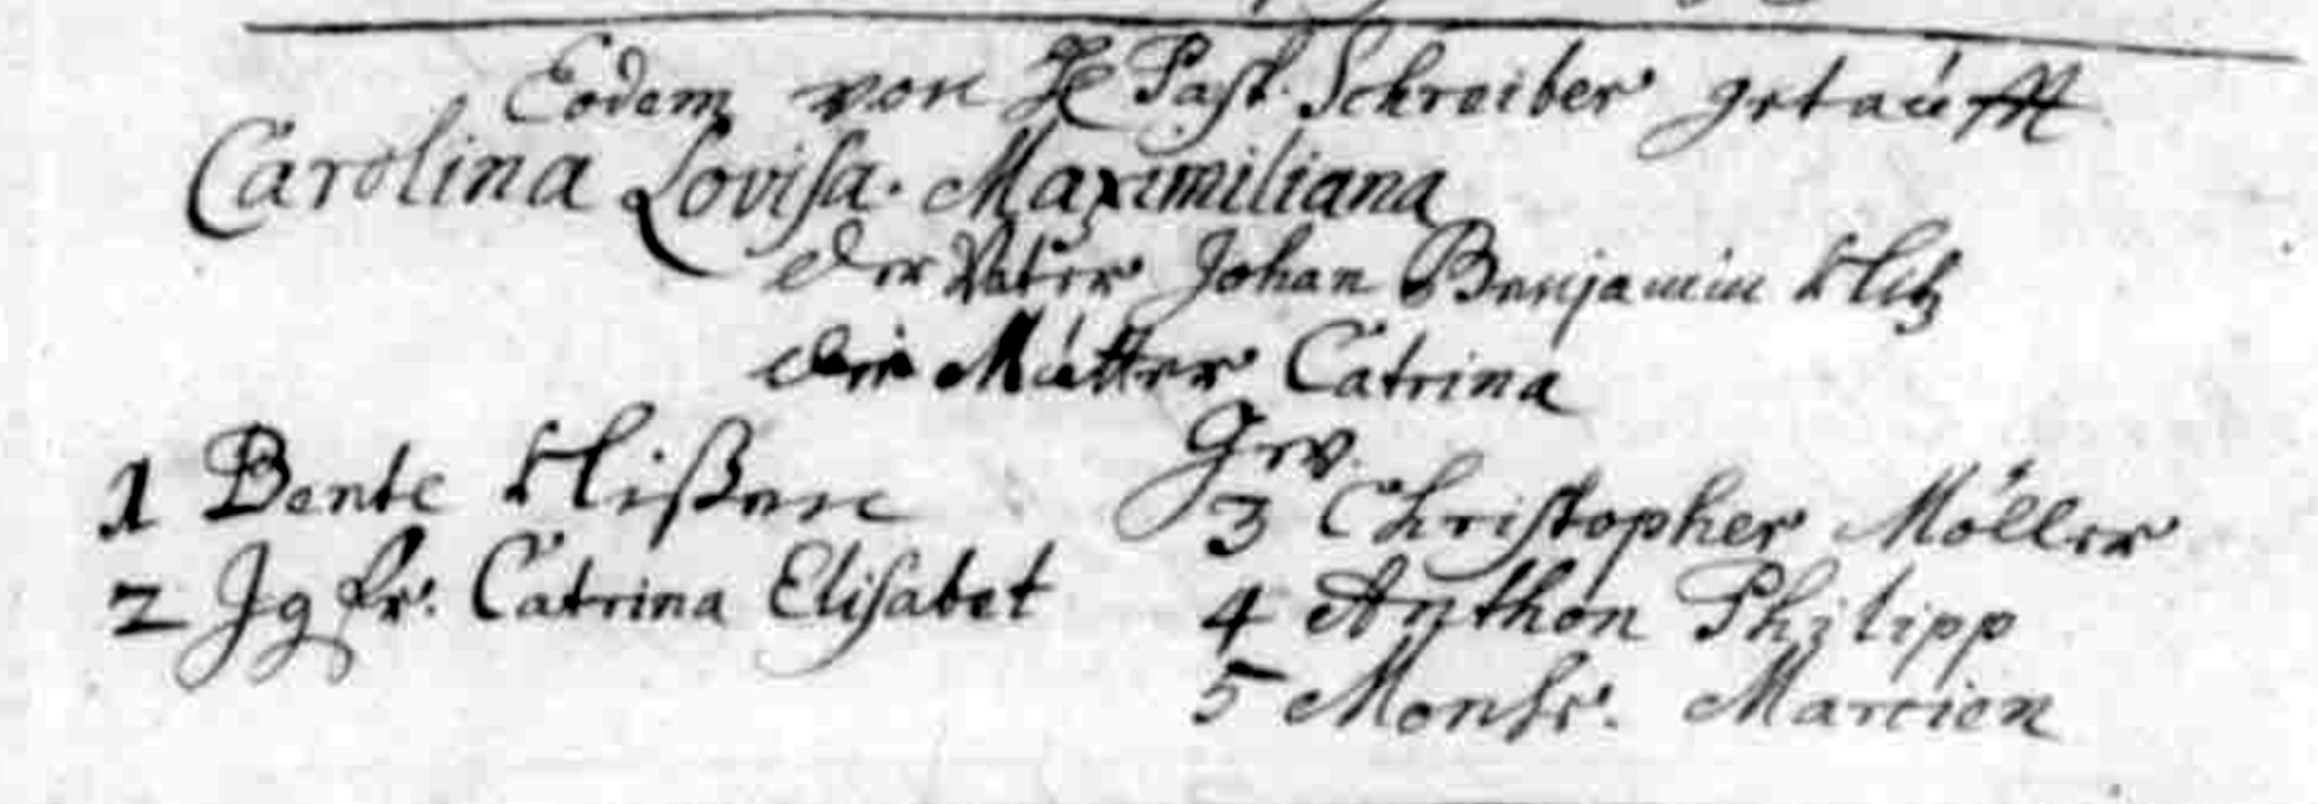 Eodem von H Past. Schreiber getaufft
Carolina Lovisa. Maximiliana
der Vater Johan Benjamin Klitz
die Mutter Catrina
Gev.
1 Bente Klißen
2 Jgfr. Catrina Elisabet
3 Christopher Möller
4 Anthon Philipp
5 Monsr. Marcien